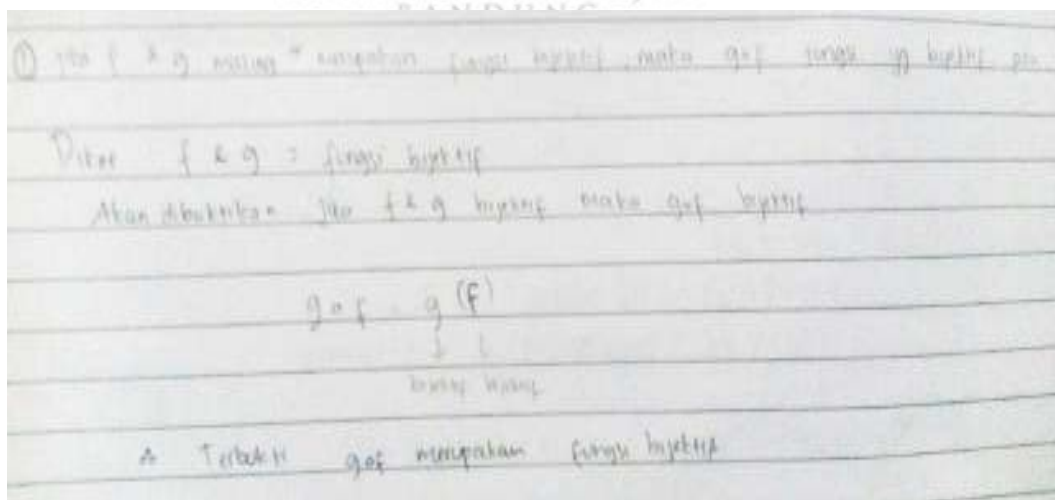 BANDUNG
① Jika f & g masing" merupakan fungsi bijektif, maka gof fungsi yg bijektif
Diket f & g = fungsi bijektif
Akan dibuktikan jika f & g bijektif maka gof bijektif
gof = g (f)
↓ ↓
bijektif bijektif
∴ Terbukti gof merupakan fungsi bijektif